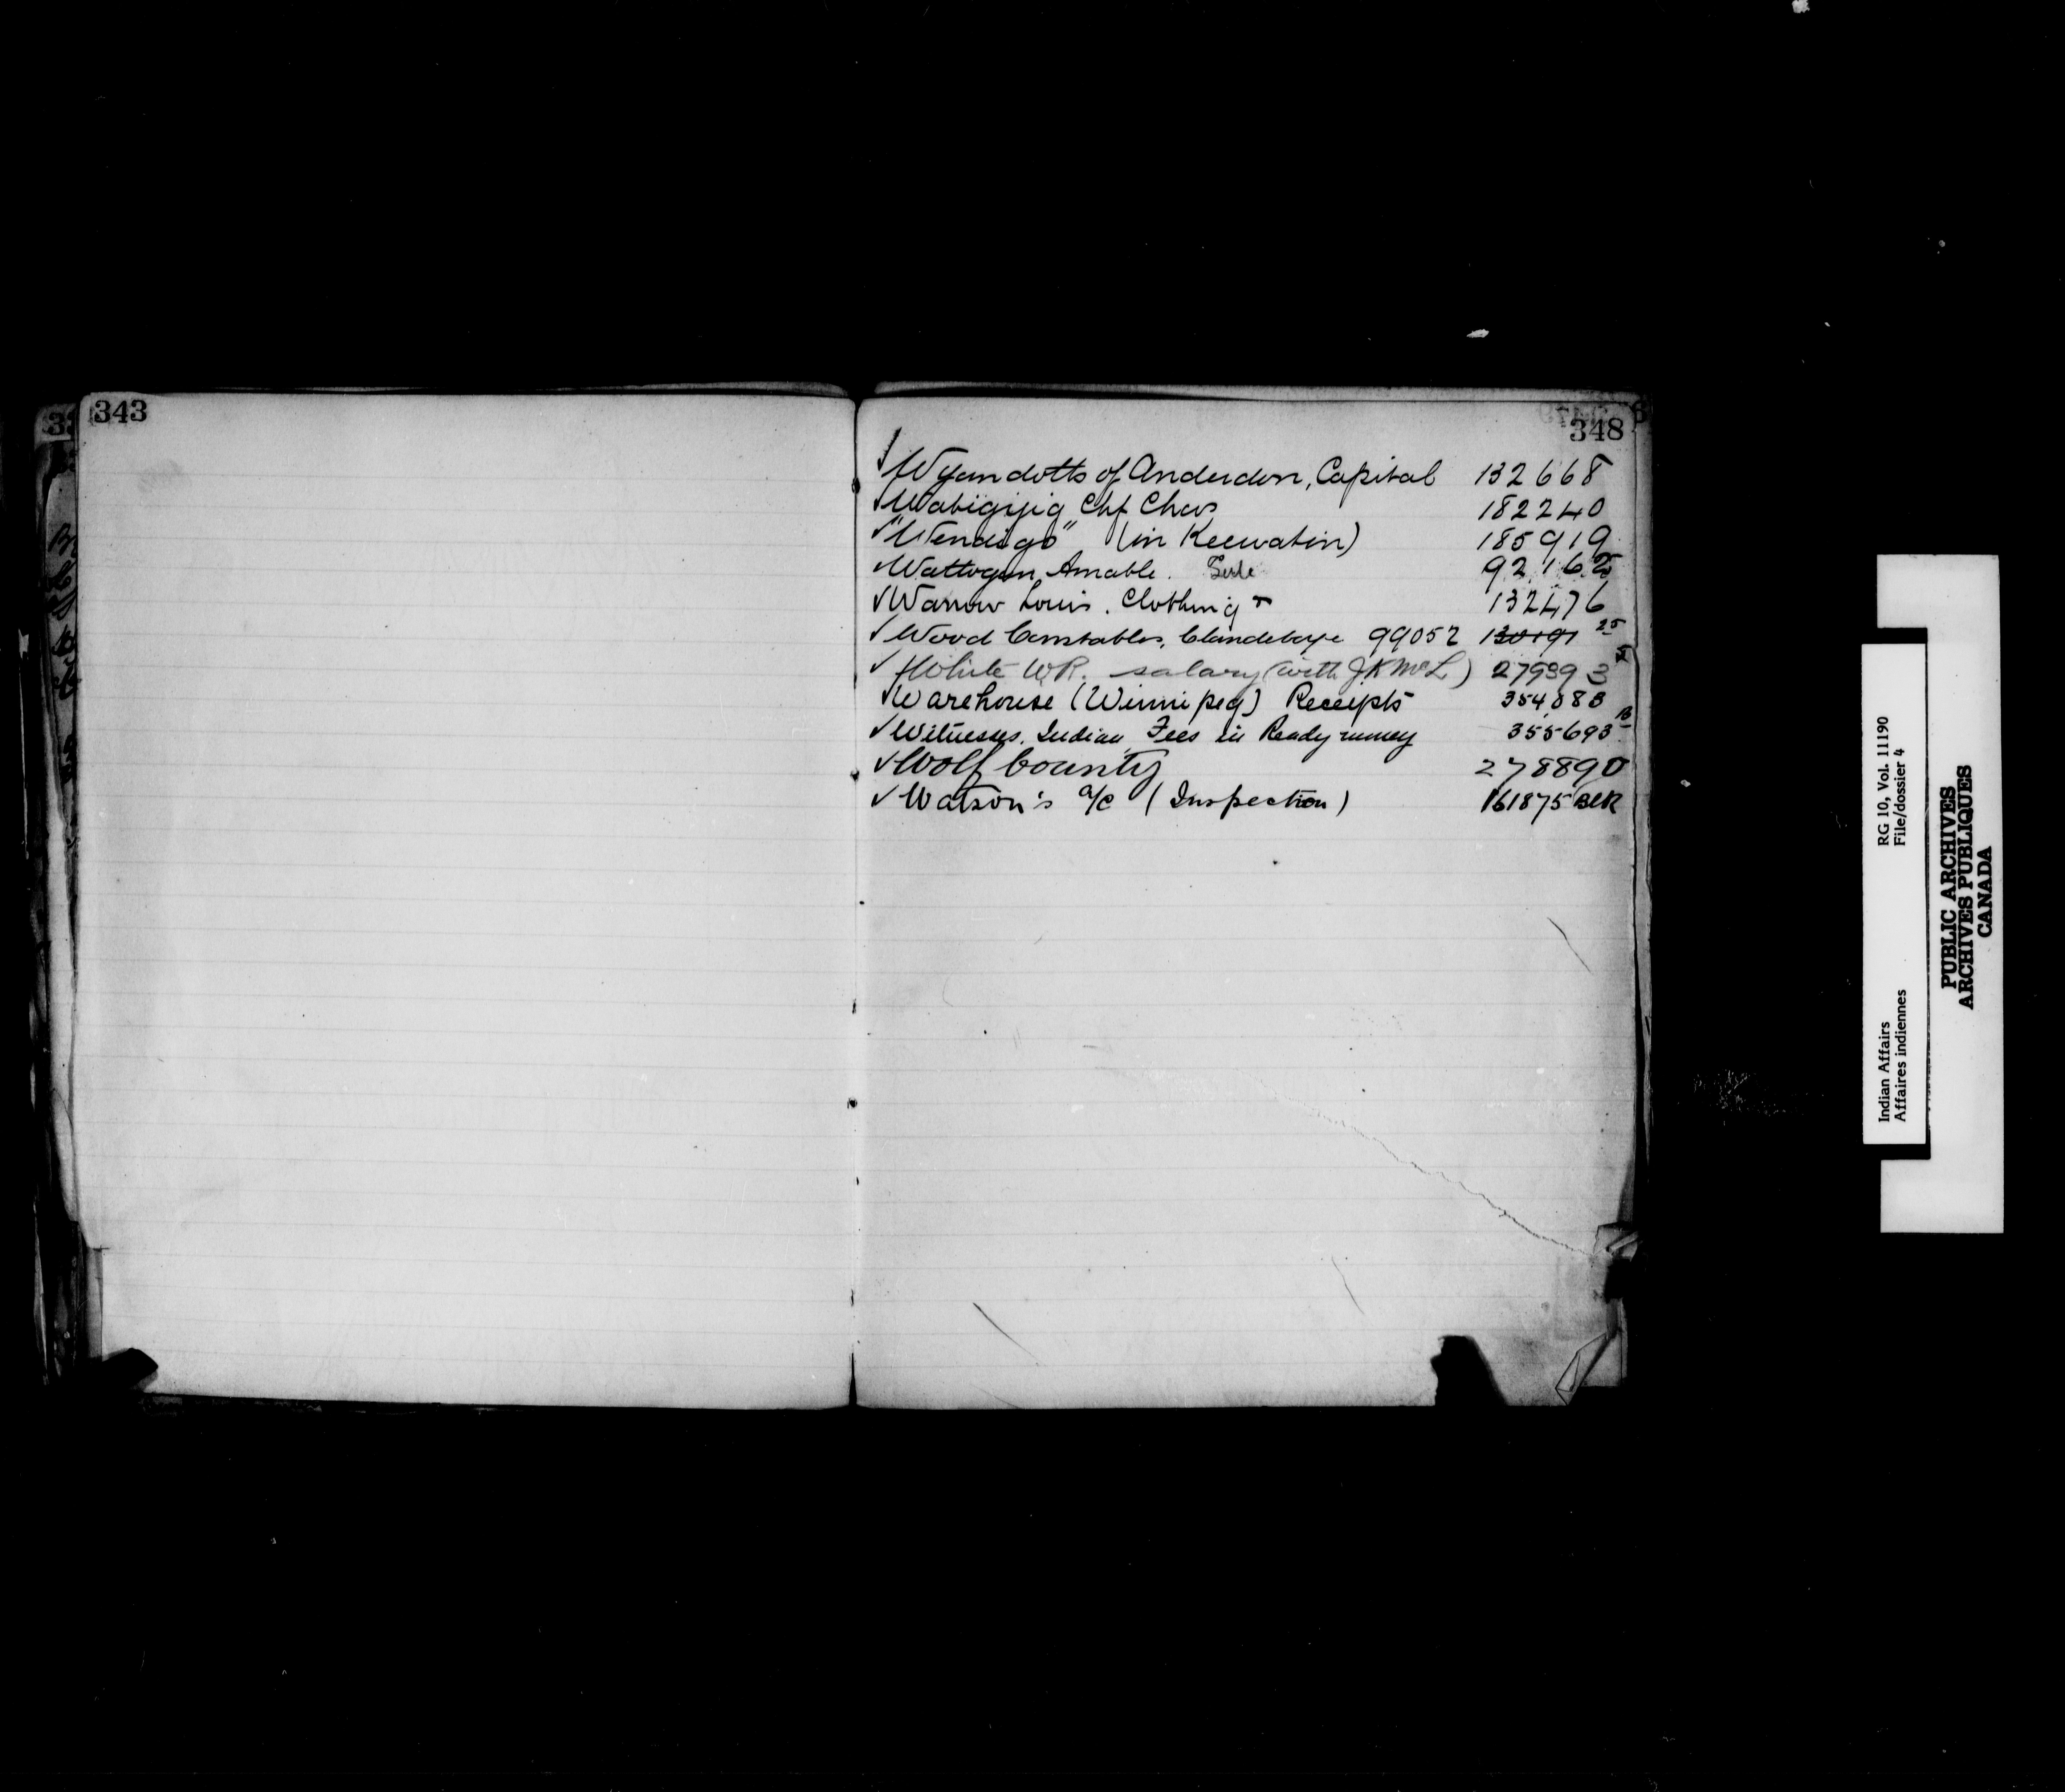 343
348
✓ Wyandotts of Anderdon, Capital 132668
✓ Wabigijig Chf Chas 182240
✓ "Wendigo" (in Keewatin) 185919
✓ Wattogun Amable. 92162
✓ Louis. Clothing 132476
✓ Wood Constables, Clandeboye 99052 130191 25
✓ White W.R. salary (with J K McL) 279393
✓ Warehouse (Winnipeg) Receipts 354,088
✓ Witnesses, Indian, Fees in Ready money 355693
✓ Wolf bounty 278890
✓ Watson's a/c (Inspection) 161875 BLK
Indian Affairs RG 10, Vol. 11190
Affaires indiennes File/dossier 4
PUBLIC ARCHIVES
ARCHIVES PUBLIQUES
CANADA